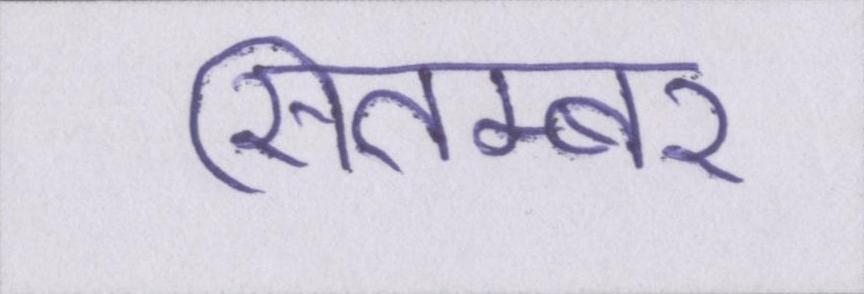 सितम्बर